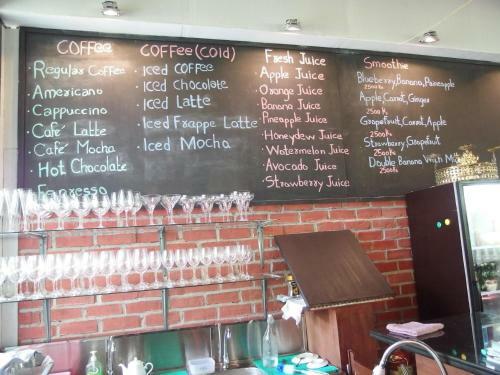 COFFEE
Regular Coffee
Americano
Cappuccino
Café Latte
Café Mocha
Hot Chocolate
Espresso
COFFEE(Cold)
Iced COFFEE
Iced Chocolate
Iced Latte
Iced Frappe Latte
Iced Mocha
Fresh Juice
Apple Juice
Orange Juice
Banana Juice
Pineapple Juice
Honeydew Juice
Watermelon Juice
Avocado Juice
Strawberry Juice
Smoothie
Blueberry,Banana,Pineapple
2500Ks
Apple,Carrot,Ginger
2500Ks
Grapefruit,Carrot,Apple
2500Ks
Strawberry,Grapefruit
2500Ks
Double Banana With Milk
2500Ks